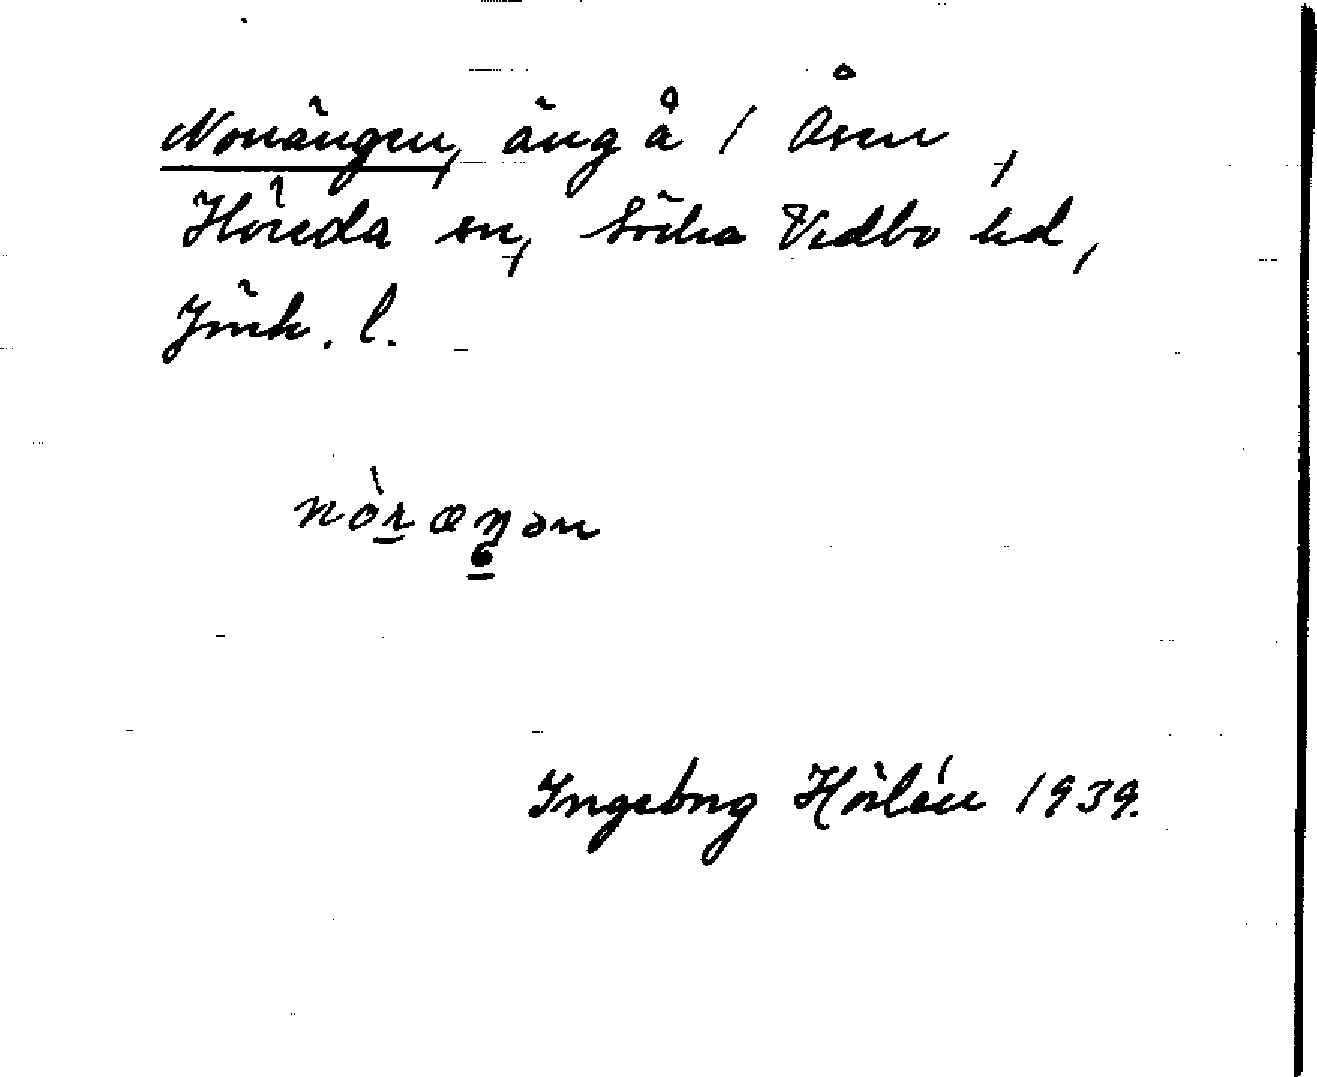 Norrängen, äng å 1 Åsen,
Höreda sn, Södra Vedbo hd,
Jönk. l.
nòræŋən
Ingeborg Hörlén 1939.